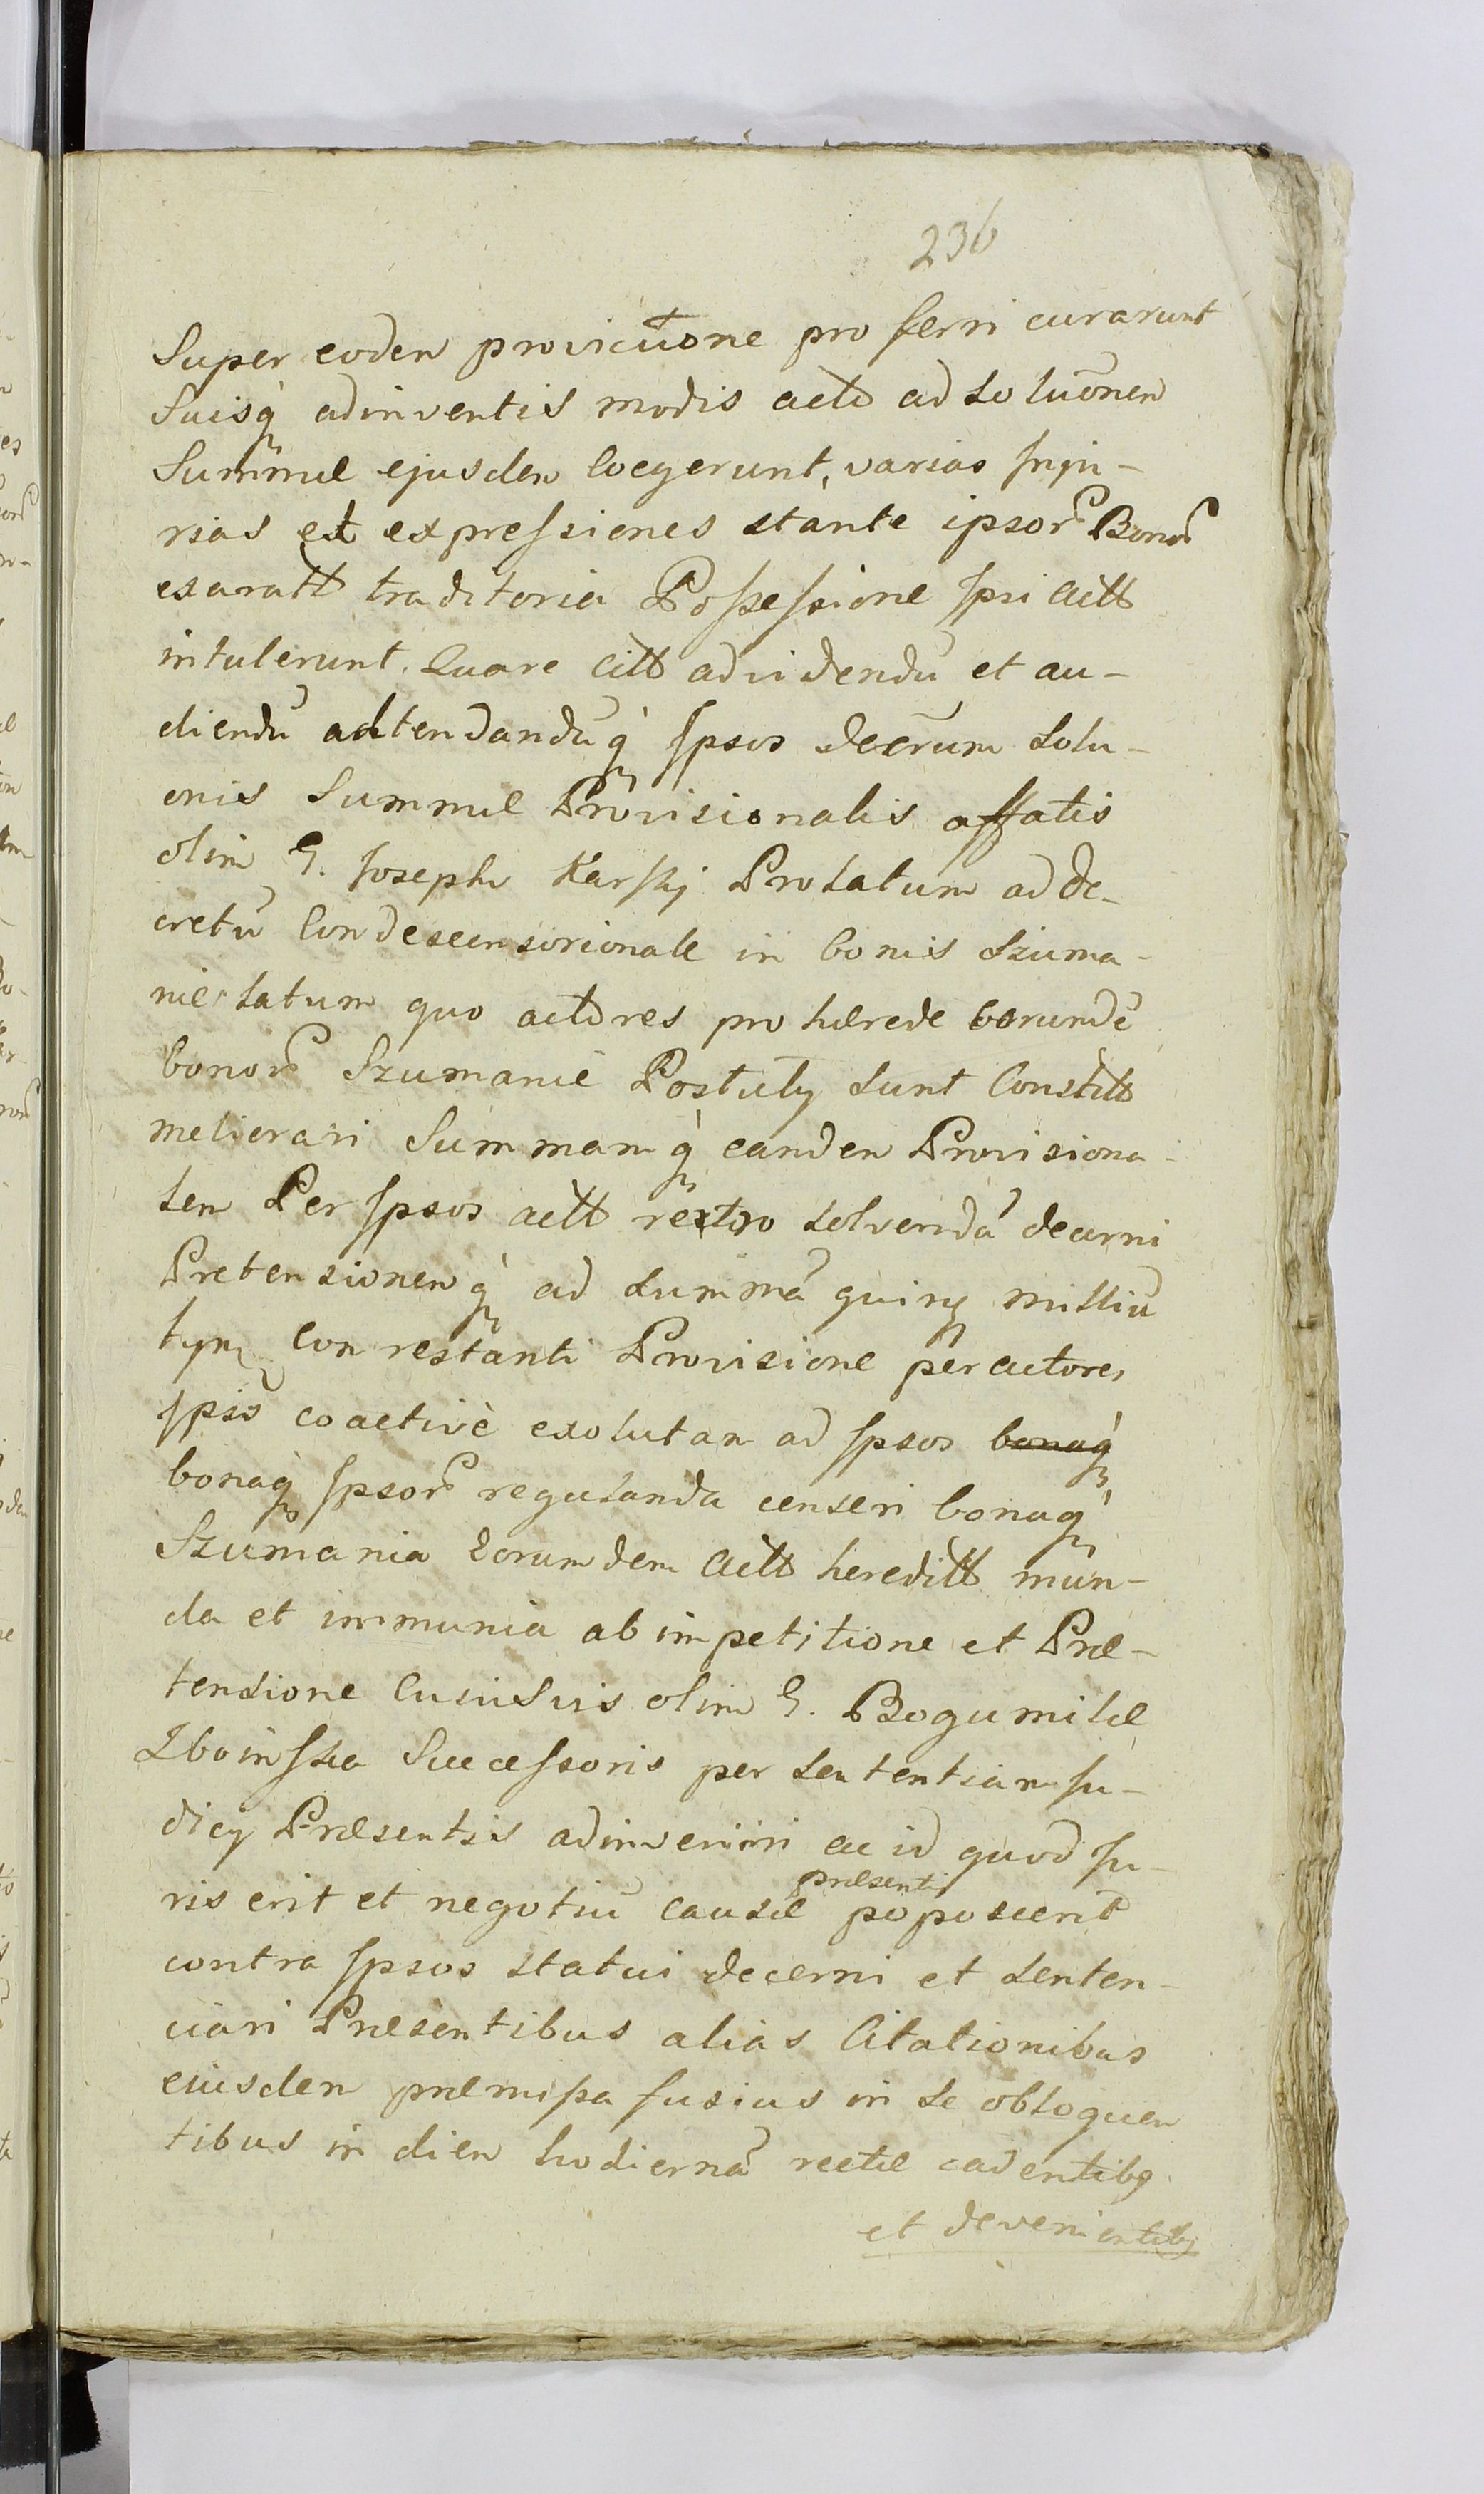 236
Super eodem provisione pro ferri curarunt
Suisq̀ adinventis modis actō ad Solūonem
Summæ ejusdem Coegerunt, varias Inju-
rias et expressiones stante ipsor Bonor
exaratt traditoria Possessione Ipsi Actt
intulerunt. Quare Citt ad videndū et au-
diendū adtendandūq̀ Ipsos decrum Solu-
onis Summæ Provisionalis affatis
olim G. Joseph Karskj Prolatum ad de-
cretū Condescensorionale in bonis Szuma-
nie latum quo actores pro hærede eorundē
bonor Szumanie Postuly sunt Constitt
meliorari Summamq̀ eandem Provisiona-
lem Per Ipsos actt retro solvendā decerni
Pretensionemq̀ ad summā quinq millíū
tym con restanti Provisione per actores
Ipsis coactivè exolutam ad Ipsos bonaq̀
bonaq̀ Ipsor regulanda censeri bonaq̀
Szumania eorumdem Actt hereditt mun-
da et immunia ab impetitione et Præ-
tensione Cuiusvis olim G. Bogumilæ
Zboinska Successoris per sententiam Ju-
dicÿ Præsentis adinveniri ac id quod Ju-
ris erit et negotiū causæ præsenti poposcerit
contra Ipsos statui decerni et senten-
ciari Præsentibus alias Citationibus
eiusdem præmissa fusius in se obloquen
tibus in diem hodiernā rectæ cadentibq
et devenientibq